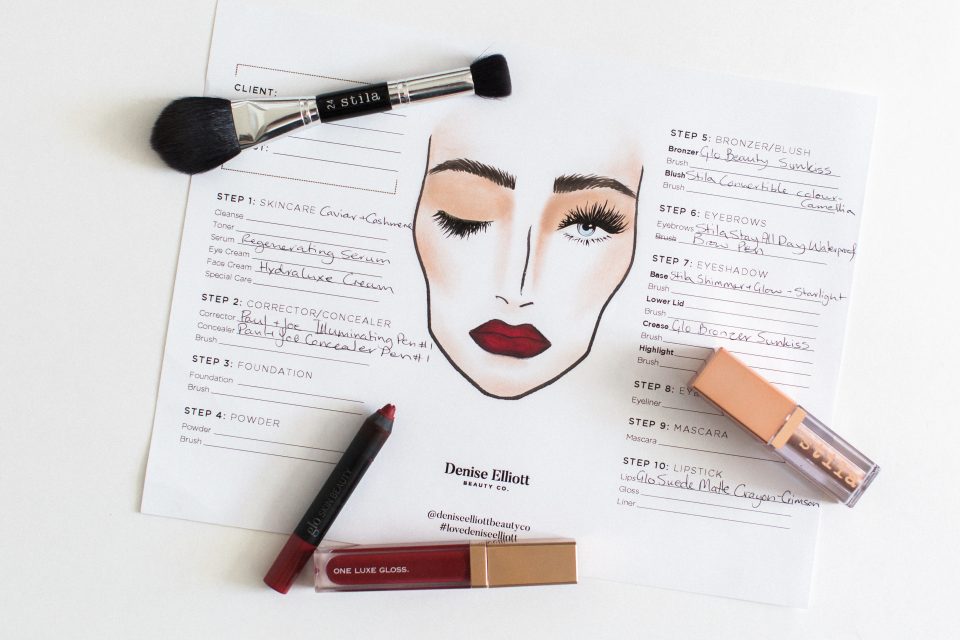 CLIENT:
24 stila
STEP 1: SKINCARE Caviar + Cashmere
Cleanse
Toner
Serum Regenerating Serum
Eye Cream
Face Cream HydraLuxe Cream
Special Care
STEP 2: CORRECTOR/CONCEALER
Corrector Paul + Joe Illuminating Pen #1
Concealer Paul + Joe Concealer Pen #1
Brush
STEP 3: FOUNDATION
Foundation
Brush
STEP 4: POWDER
Powder
Brush
STEP 5: BRONZER/BLUSH
Bronzer Glo Beauty Sunkiss
Brush
Blush Stila Convertible colour-
Brush Camellia
STEP 6: EYEBROWS
Eyebrows Stila Stay All Day Waterproof
Brush Brow Pen
STEP 7: EYESHADOW
Base Stila Shimmer + Glow - Starlight
Brush
Lower Lid
Brush
Crease Glo Bronzer Sunkiss
Brush
Highlight
Brush
STEP 8:
Eyeliner
STEP 9: MASCARA
Mascara
STEP 10: LIPSTICK
Lips Glo Suede Matte Crayon-Crimson
Gloss
Liner
Denise Elliott
BEAUTY CO.
@deniseelliottbeautyco
#lovedeniseelliott
glo SKIN BEAUTY
ONE LUXE GLOSS.
stila